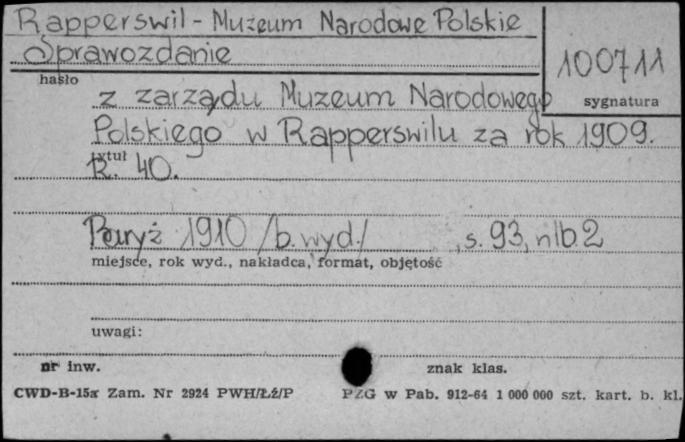 Rapperswil - Muzeum Narodowe Polskie
Sprawozdanie
100711
hasło
sygnatura
z zarządu Muzeum Narodowego
Polskiego w Rapperswilu za rok 1909.
tytuł
R. 40.
Paryż 1910 /b. wyd./ , s. 93, nlb. 2
miejsce, rok wyd., nakładca, format, objętość
uwagi:
nr inw.
znak klas.
CWD-B-15a Zam. Nr 2924 PWH/Łź/P
PZG w Pab. 912-64 1 000 000 szt. kart. b. kl.